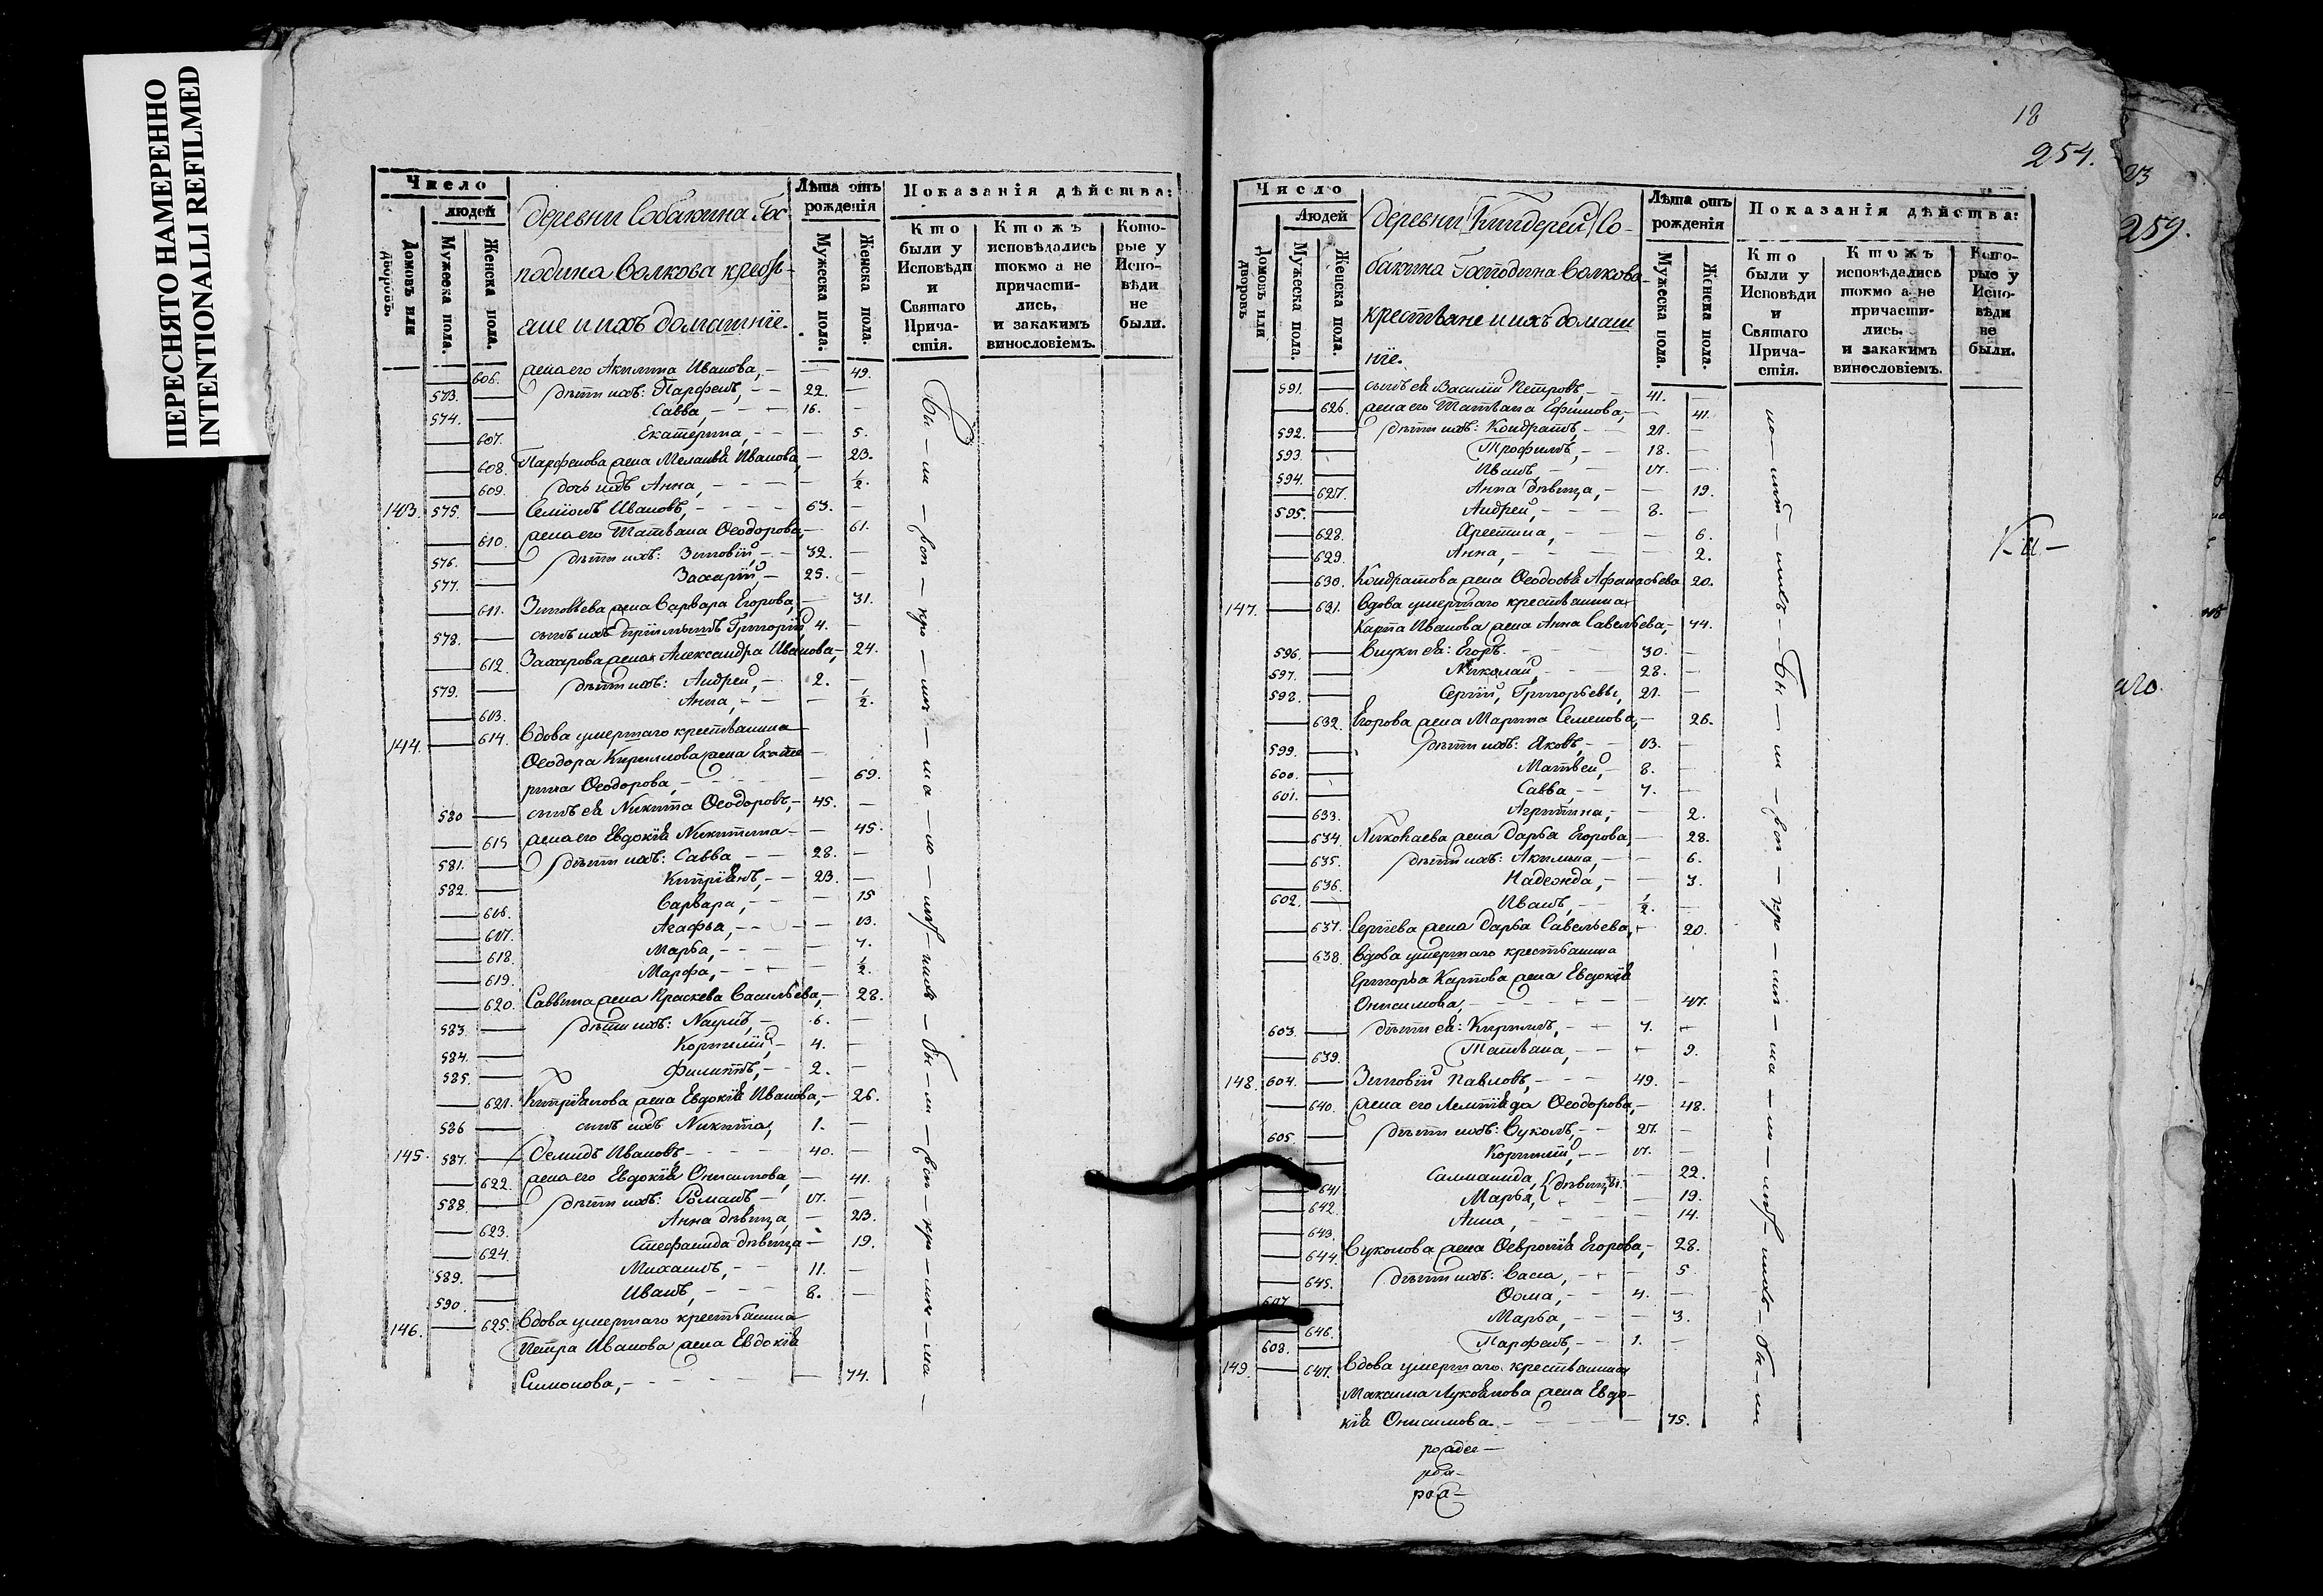 ПЕРЕСНЯТО НАМЕРЕННО
INTENTIONALLI REFILMED
Число
людей
Домовъ или дворовъ.
Мужеска пола.
Женска пола.
деревни Собакина Гос-
подина Волкова кресть-
ане и ихъ домашнїе.
Лѣта отъ рождения
Мужеска пола.
Женска пола.
Показанія дѣйства:
Кто были у Исповѣди и Святаго Причастія.
Ктожъ исповѣдались токмо а не причастились, и закакимъ винословіемъ.
Которые у Исповѣди не были.
606. жена его Акилина Иванова, — 49.
573. дѣти ихъ: Парфенъ, — 22.
574. Савва, — 16.
607. Екатерина, — 5.
608. Парфенова жена Меланья Иванова — 23.
609. дочь ихъ Анна, — ½.
143. 575. Семіонъ Ивановъ, — 63.
610. жена его Татьяна Ѳеодорова, — 61.
576. дѣти ихъ: Зиновій, — 32.
577. Захарій, — 25.
611. Зиновьева жена Варвара Егорова, — 31.
578. сынъ ихъ Григорій 4.
612. Захарова жена Александра Иванова, — 24.
579. дѣти ихъ: Андрей, — 2.
613. Анна, — ½.
144. 614. Вдова умершаго крестьянина
Ѳеодора Кирилова жена Екате
рина Ѳеодорова, — 69.
580 сынъ ея Никита Ѳеодоровъ, — 45.
615 жена его Евдокія Никитина — 45.
581. дѣти ихъ: Савва — 28.
582. Кипріянъ, — 23.
616. Варвара, — 15
617. Агафья, — 13.
618. Марья, — 7.
619. Марфа, — ½.
620. Саввина жена Праскева Васильева, — 28.
583. дѣти ихъ: Наумъ, — 6.
584. Корнилій, — 4.
585. Филиппъ, — 2.
621. Кипріянова жена Евдокія Иванова, — 26.
586 сынъ ихъ Никита, 1.
145. 587. Ивановъ — 40.
622. жена его Евдокія Онисимова, — 41.
588. дѣти ихъ: Романъ — 17.
623. Анна дѣвица, — 23.
624. Стефанида дѣвица — 19.
589. Михаилъ, — 11.
590. Иванъ, — 8.
146. 625. Вдова умершаго крестьянина
Петра Иванова жена Евдокія
Симонова, — 74.
18
254.
Число
Людей
Домовъ или дворовъ
Мужеска пола.
Женска пола.
деревни Киндерей Со-
бакина Господина Волкова
крестьяне и ихъ домаш
нїе.
Лѣта отъ рождения
Мужеска пола.
Женска пола.
Показанія дѣйства:
Кто были у Исповѣди и Святаго Причастія.
Ктожъ исповѣдались токмо а не причастились. и закакимъ винословіемъ.
Которые у Исповѣди не были.
591. сынъ ея Василій Петровъ, — 41.
626. жена его Татьяна Ефимова, — 41.
592. дѣти ихъ: Кондратъ, — 21.
593. Трофимъ, — 18.
594. Иванъ, — 17.
627. Анна дѣвица, — 19.
595. Андрей, — 8.
628. Хрестина, — 6.
629. Анна, — 2.
630. Кондратова жена Ѳеодосья Афанасьева 20.
147. 631. Вдова умершаго крестьянина
Карпа Иванова жена Анна Савельева, — 74.
596. Внуки ея: Егоръ — 30.
597. Николай, — 28.
598. Сергій, Григорьевы, 21.
632. Егорова жена Марина Семенова, — 26.
599. дѣти ихъ: Яковъ, — 13.
600. Матвей, — 8.
601. Савва, — 7.
633. Агрипина, — 2.
634. Николаева жена Дарья Егорова, — 28.
635. дѣти ихъ: Акилина, — 6.
636. Надежда, — 3.
602. Иванъ, — ½.
637. Сергіева жена Дарья Савельева, — 20.
638. Вдова умершаго крестьянина
Григорья Карпова жена Евдокія
Онисимова, — 47.
603. дѣти ея: Кирилъ, — 7.
639. Татьяна, — 9.
148. 604. Зиновій Павловъ, — 49.
640. жена его Ѳеодорова, — 48.
605. дѣти ихъ: Вуколъ, — 27.
Корнилій, — 17.
641 Саломанида, дѣвицы — 22.
642. Марья, — 19.
643. Анна, — 14.
644. Вуколова жена Ѳевронія Егорова, — 28.
645. дѣти ихъ: Васса, — 5
607. Ѳома, — 4.
646. Марья, — 3.
608. Парфенъ, — 1.
149. 647. Вдова умершаго крестьянина
Максима Лукоянова жена Евдо-
кія Онисимова — 75.
23
259.